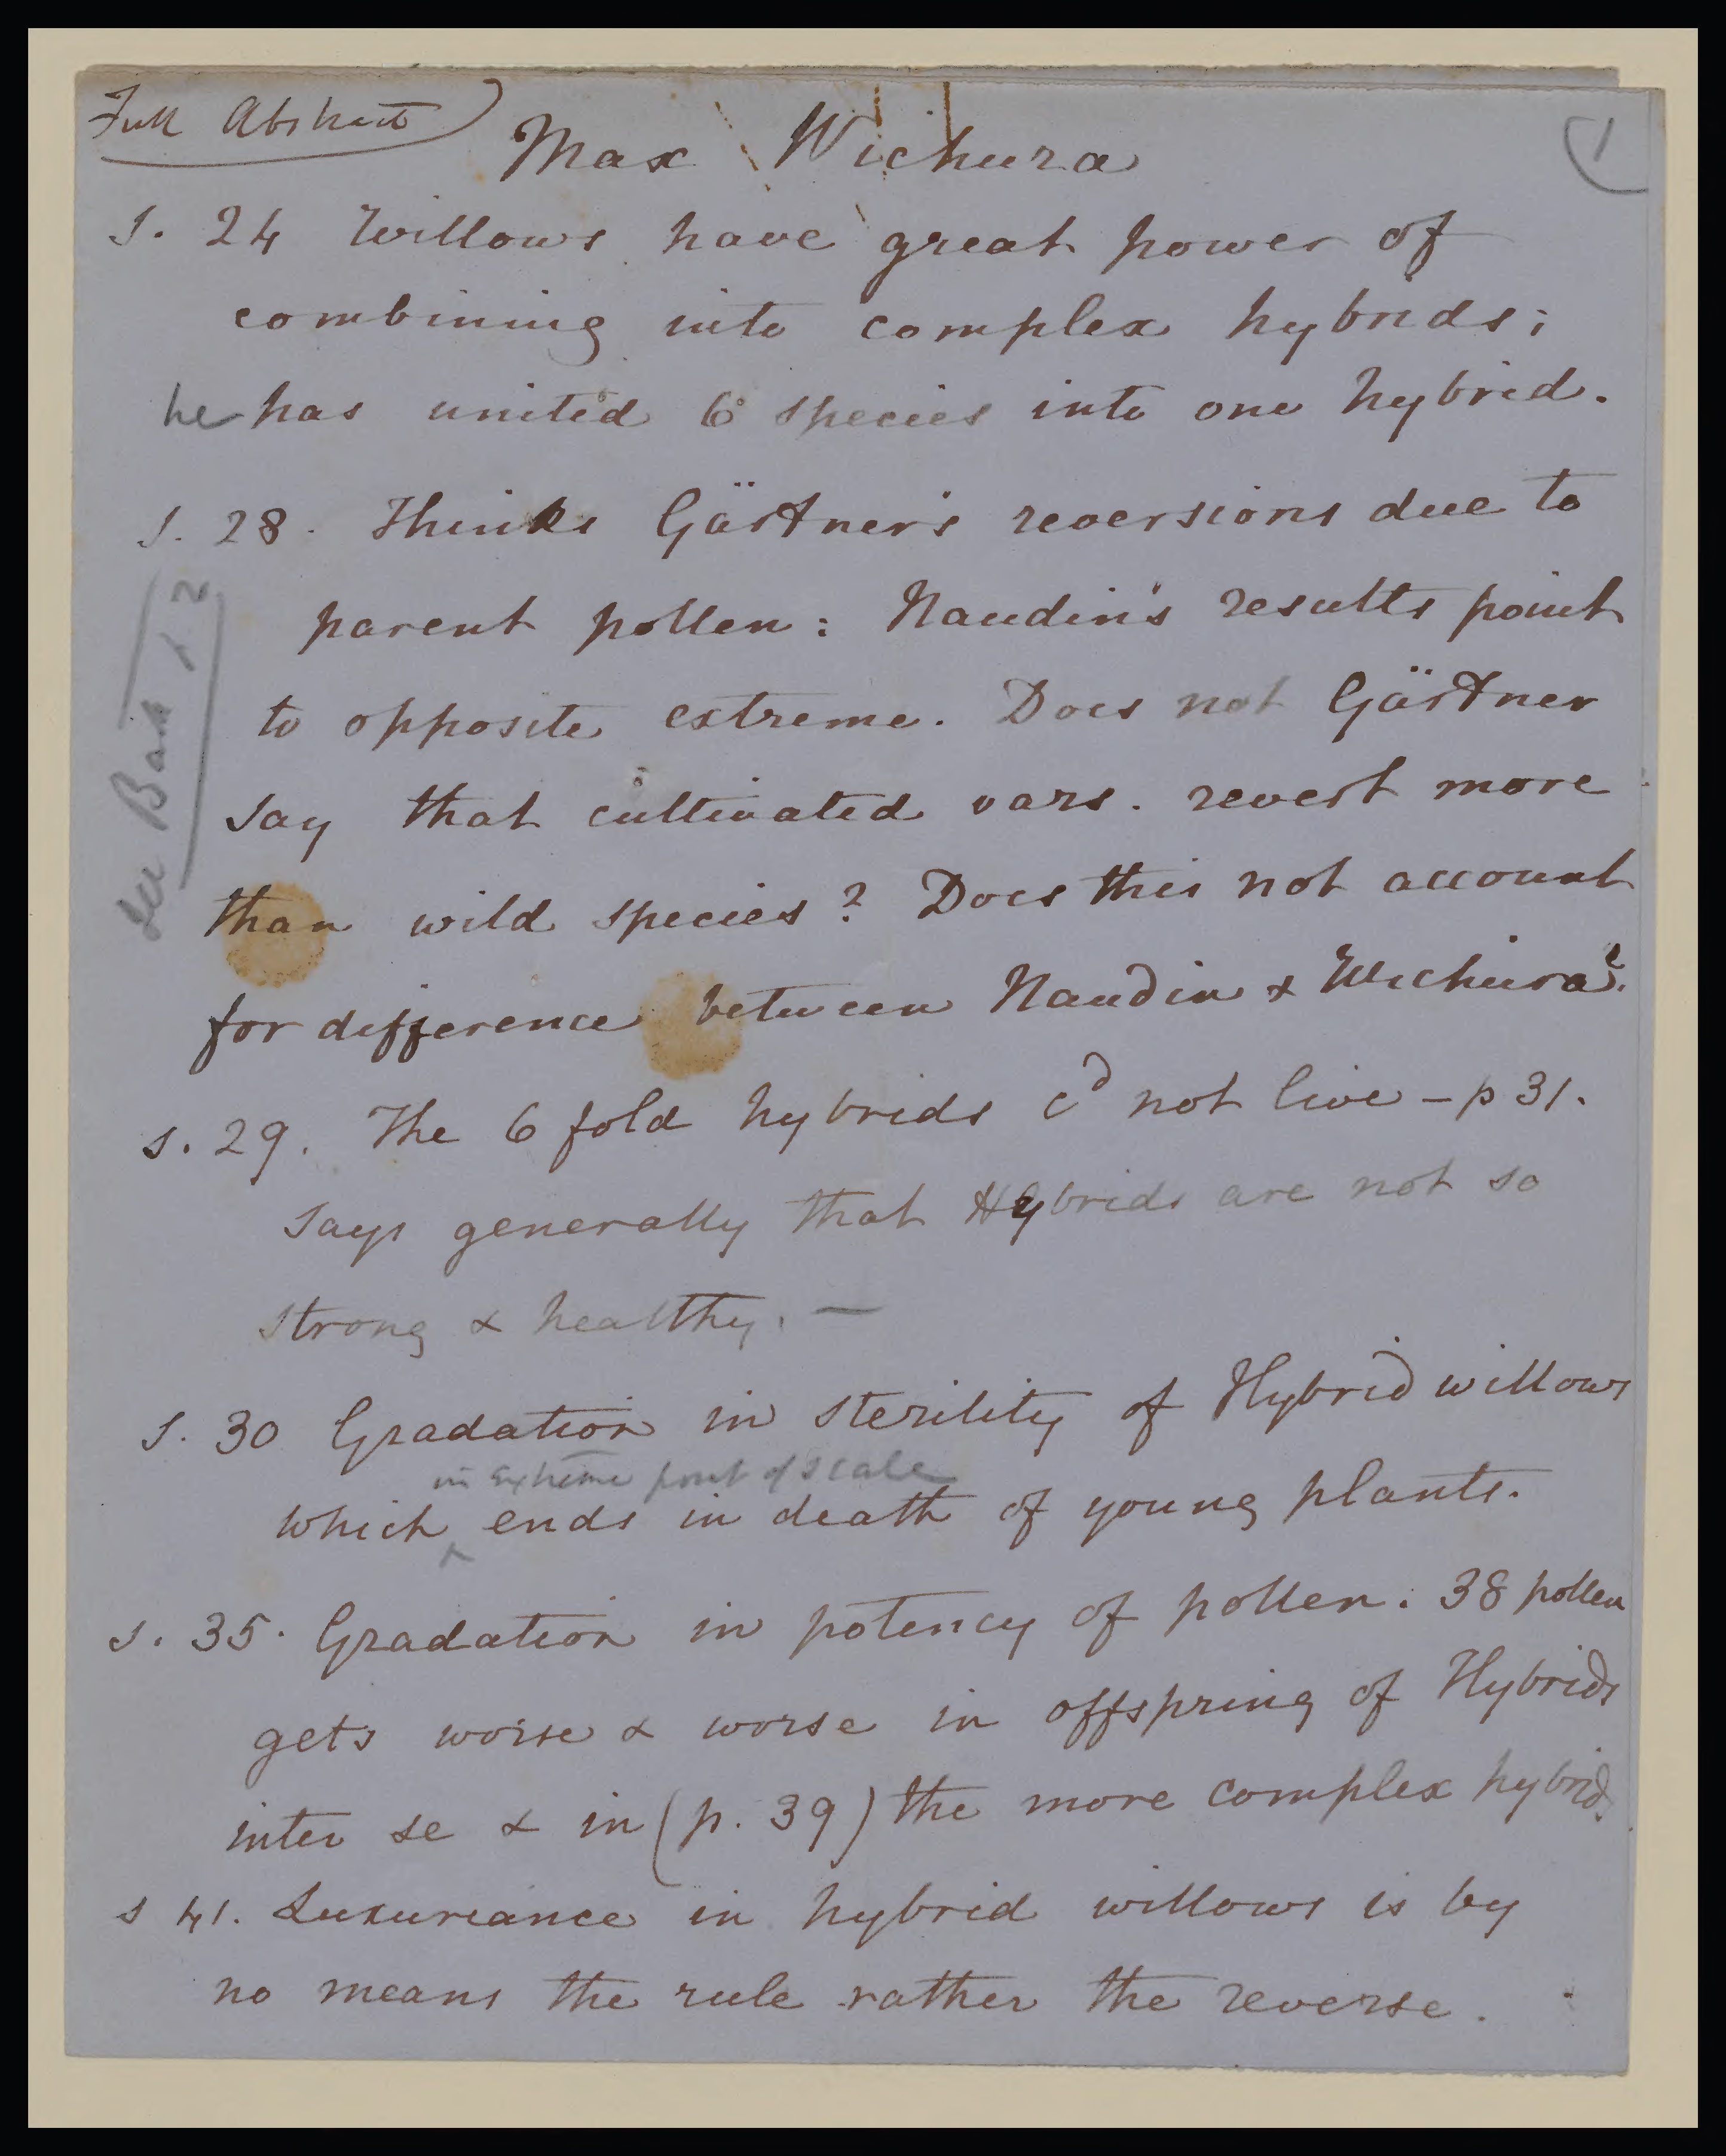 Full Abstract)
Max Wichura
(1
S. 24 Willows have great power of
combining into complex hybrids;
he has united 6 species into one hybrid.
S. 28. Thinks Gärtner's reversions due to
parent pollen: Naudin's results point
to opposite extreme. Does not Gärtner
say that cultivated vars. revert more
than wild species? Does this not account
for difference between Naudin & Wichura?
see Back 1 2
S. 29. The 6 fold hybrids cd not live – p 31.
Says generally that Hybrids are not so
strong & healthy. —
S. 30 Gradation in sterility of Hybrid willows
in extreme point of scale
which ^ ends in death of young plants.
S. 35. Gradation in potency of pollen. 38 pollen
gets worse & worse in offspring of Hybrids
inter se & in (p. 39) the more complex hybrids.
S 41. Luxuriance in hybrid willows is by
no means the rule rather the reverse.